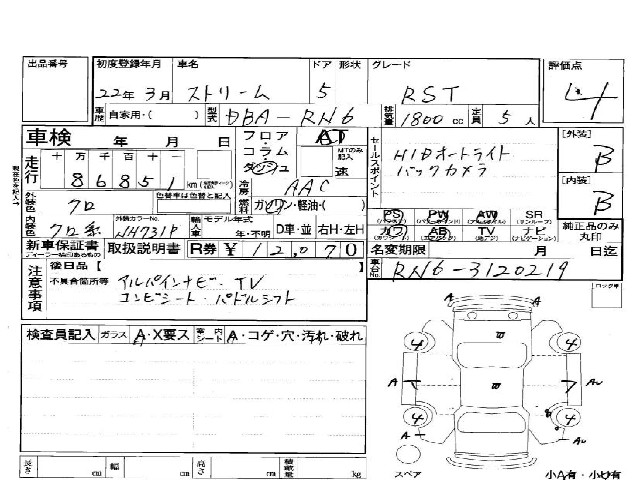 出品番号 初度登録年月 車名 ドア 形状 グレード 評価点
22年 3月 ストリーム 5 RST 4
車歴 自家用・( ) 型式 DBA-RN6 排気量 1800 cc 定員 5 人
車検 年 月 日 フロア コラム ダッシュ AT MTのみ記入 速 セールスポイント HIDオートライト バックカメラ [外装] B
走行 十 万 千 百 十 一 86851 km 冷房 AAC [内装] B
外装色 クロ 色替車は色替と記入 燃料 ガソリン・軽油・( ) PS PW AW SR
カワ AB TV ナビ 純正品のみ丸印
内装色 クロ系 外装カラーNo. NH731P 輸入車 モデル年式 年・不明 D車・並 右H・左H
新車保証書 取扱説明書 R券 ¥12,070 名変期限 月 日迄
注意事項 後日品[ ] 車台No. RN6-3120219
不具合箇所等 アルパインナビ・TV
コンビシート・パドルシフト
検査員記入 ガラス A・X要ス 室内シート A・コゲ・穴・汚れ・破れ
A A
4 4
A A
4 4
A
長さ cm 幅 cm 高さ cm 積載量 kg スペア 小A有・小キズ有